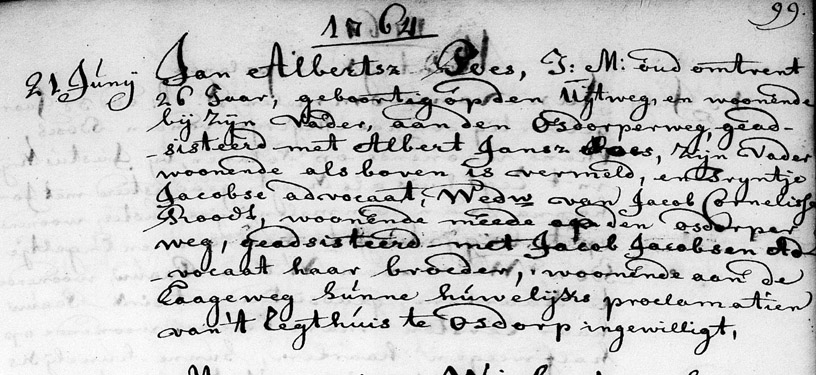 99.
1764
21 Junij Jan Albertsz Roos, J: M: oud omtrent
26 Jaar, geboortig op den Uijtweg, en woonende
bij Zijn Vader, aan den Osdorperweg, gead-
-sisteerd met Albert Jansz Roos, Zijn Vader
woonende als boven is vermeld, en Tryntje
Jacobse advocaat, Wedw van Jacob Cornelisse
Roodt, woonende meede op den osdorper
weg, geadsisteerd met Jacob Jacobsen Ad-
-vocaat haar broeder, woonende aan de
Laageweg hunne huwelijks proclamatien
van't Regthuis te Osdorp ingewilligt,